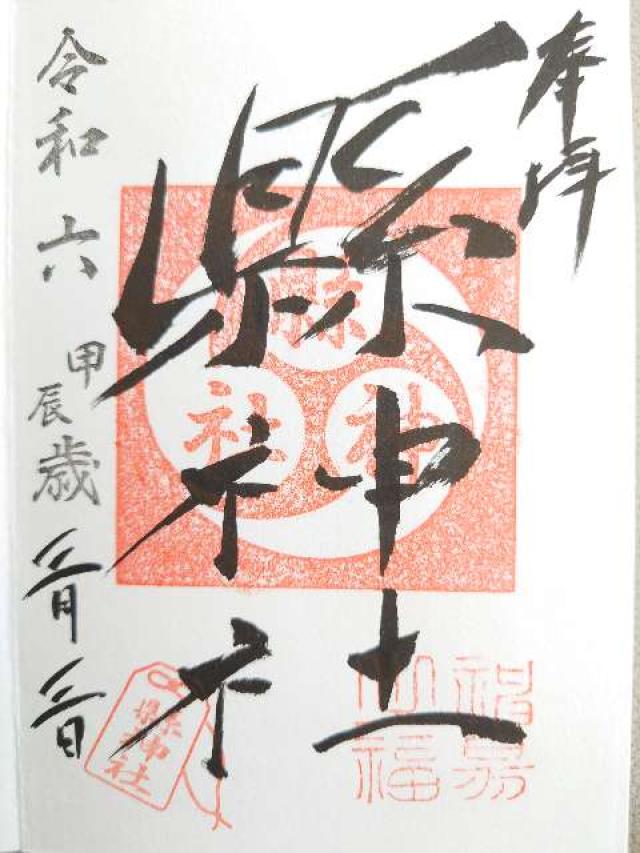 奉拝
縣神社
縣神社
令和六甲辰歳三月三日
縣神社